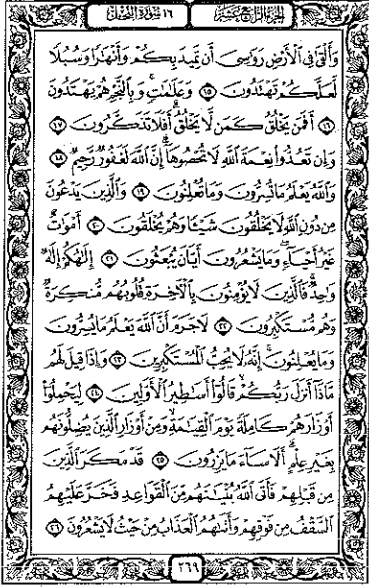 الجزء الرابع عشر
١٦ سورة النحل
وَأَلْقَىٰ فِي الْأَرْضِ رَوَاسِيَ أَن تَمِيدَ بِكُمْ وَأَنْهَارًا وَسُبُلًا
لَّعَلَّكُمْ تَهْتَدُونَ ١٥ وَعَلَامَاتٍ ۚ وَبِالنَّجْمِ هُمْ يَهْتَدُونَ
١٦ أَفَمَن يَخْلُقُ كَمَن لَّا يَخْلُقُ ۗ أَفَلَا تَذَكَّرُونَ ١٧
وَإِن تَعُدُّوا نِعْمَةَ اللَّهِ لَا تُحْصُوهَا ۗ إِنَّ اللَّهَ لَغَفُورٌ رَّحِيمٌ ١٨
وَاللَّهُ يَعْلَمُ مَا تُسِرُّونَ وَمَا تُعْلِنُونَ ١٩ وَالَّذِينَ يَدْعُونَ
مِن دُونِ اللَّهِ لَا يَخْلُقُونَ شَيْئًا وَهُمْ يُخْلَقُونَ ٢٠ أَمْوَاتٌ
غَيْرُ أَحْيَاءٍ ۖ وَمَا يَشْعُرُونَ أَيَّانَ يُبْعَثُونَ ٢١ إِلَٰهُكُمْ إِلَٰهٌ
وَاحِدٌ ۚ فَالَّذِينَ لَا يُؤْمِنُونَ بِالْآخِرَةِ قُلُوبُهُم مُّنكِرَةٌ
وَهُم مُّسْتَكْبِرُونَ ٢٢ لَا جَرَمَ أَنَّ اللَّهَ يَعْلَمُ مَا يُسِرُّونَ
وَمَا يُعْلِنُونَ ۚ إِنَّهُ لَا يُحِبُّ الْمُسْتَكْبِرِينَ ٢٣ وَإِذَا قِيلَ لَهُم
مَّاذَا أَنزَلَ رَبُّكُمْ ۙ قَالُوا أَسَاطِيرُ الْأَوَّلِينَ ٢٤ لِيَحْمِلُوا
أَوْزَارَهُمْ كَامِلَةً يَوْمَ الْقِيَامَةِ ۙ وَمِنْ أَوْزَارِ الَّذِينَ يُضِلُّونَهُم
بِغَيْرِ عِلْمٍ ۗ أَلَا سَاءَ مَا يَزِرُونَ ٢٥ قَدْ مَكَرَ الَّذِينَ
مِن قَبْلِهِمْ فَأَتَى اللَّهُ بُنْيَانَهُم مِّنَ الْقَوَاعِدِ فَخَرَّ عَلَيْهِمُ
السَّقْفُ مِن فَوْقِهِمْ وَأَتَاهُمُ الْعَذَابُ مِنْ حَيْثُ لَا يَشْعُرُونَ ٢٦
٢٦٩